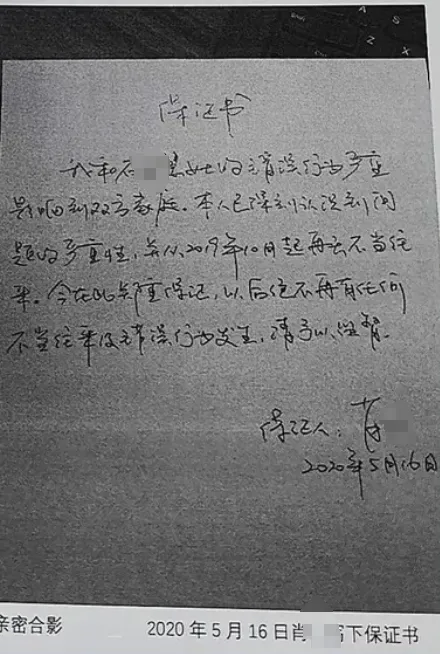 保证书
我和石 慧女士的错误行为严重
影响到双方家庭。本人已深刻认识到问
题的严重性，并从2019年10月起再无不当往
来。今在此郑重保证，以后绝不再有任何
不当往来及错误行为发生，请予以监督。
保证人：肖
2020年5月16日
亲密合影
2020年5月16日肖 写下保证书